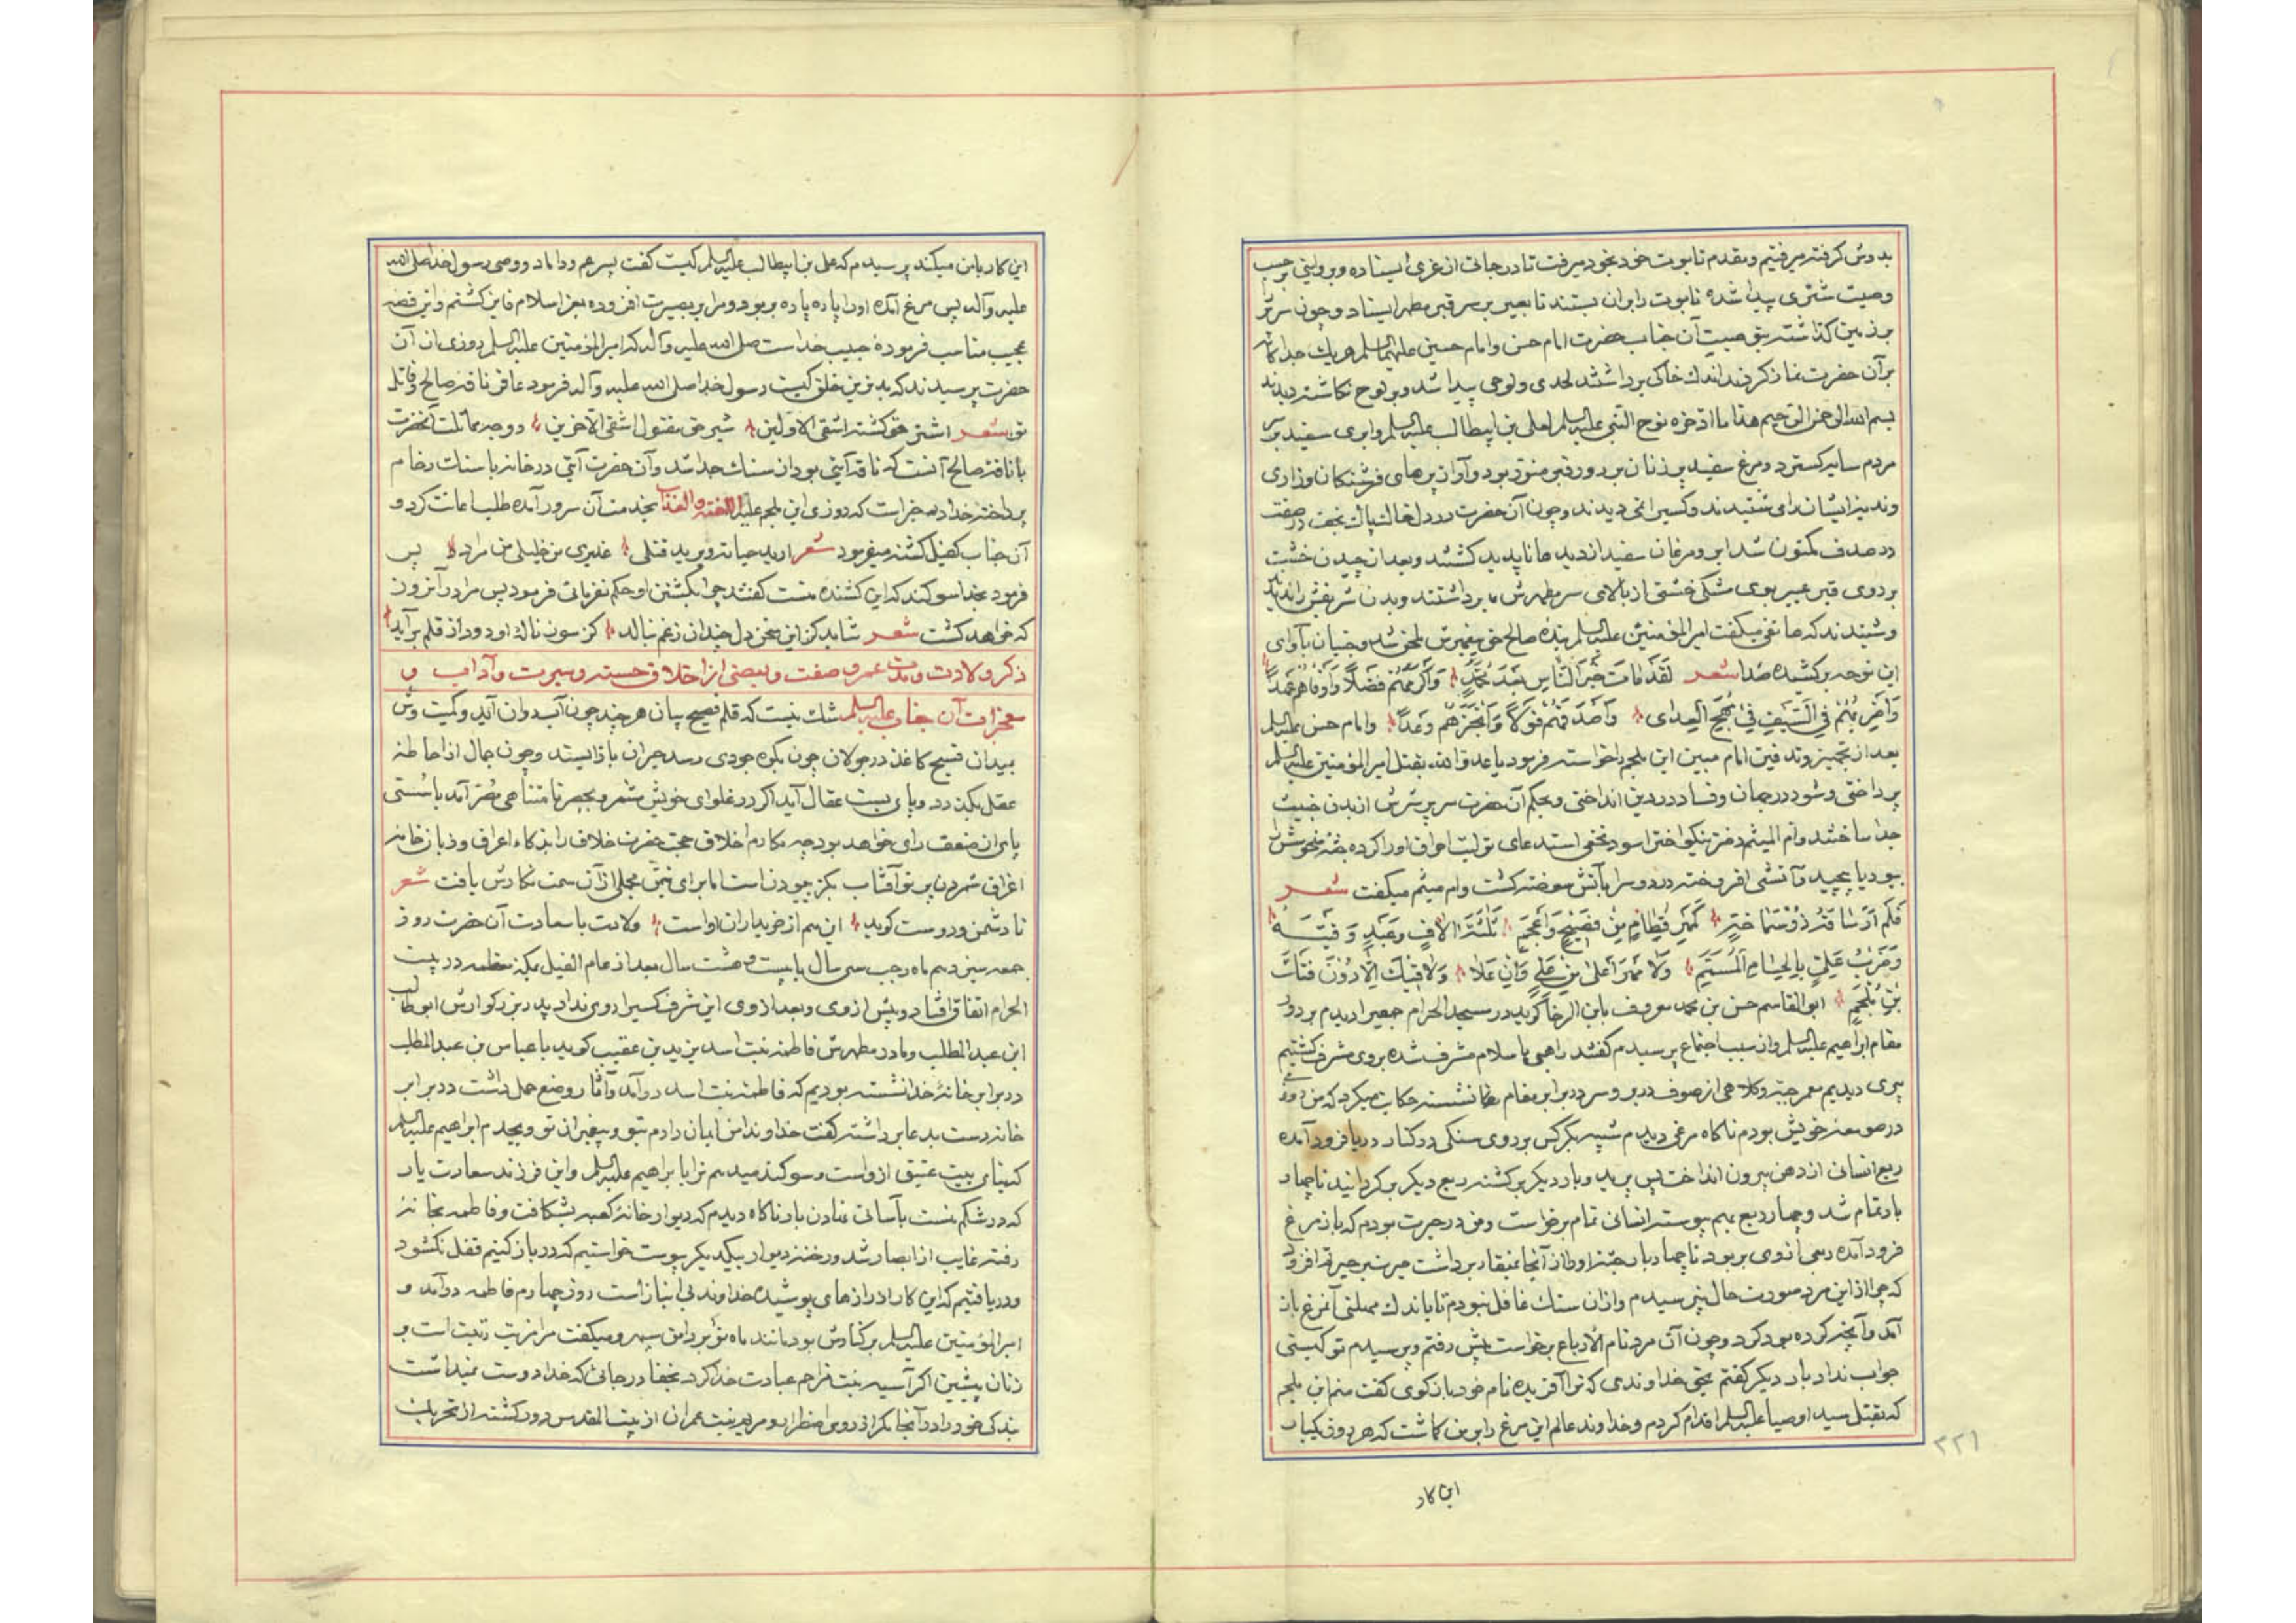 بدوش گرفته میرفتیم ومقدم تابوت خود بخود میرفت تا در جائی از غری ایستاده وبروایتی بر حسب
وصیت شتری پیدا شده تابوت را بران بستند تا بعیر بر سر قبر مطهر ایستاد وچون سریر
بر زمین گذاشته بوصیت آن جناب حضرت امام حسن وامام حسین علیهما السلم هریک جداگانه
برآن حضرت نماز کردند اندک خاکی برداشتند لحدی ولوحی پیدا شد وبر لوح نگاشته دیدند
بسم الله الرحمن الرحیم هذا ما ادخره نوح النبی علیه السلم لعلی بن ابیطالب علیه السلم وابری سفید بر سر
مردم سایه گسترد ومرغ سفید پر زنان بر دور قبر منور بود وآواز پرهای فرشتگان وزاری
وند ایشان را می شنیدند وکسیرا نمی دیدند وچون آن حضرت در دل خاک پاک نجف در صفت
در صدف مکنون شد ابر ومرغان سفید از دیدها ناپدید گشتند وبعد از چیدن خشت
بر روی قبر عبیر بوی مشکی خشتی از بالای سر مطهرش ما برداشتند وبدن شریفش را ندیدند
وشنیدند که هاتفی میگفت امیرالمؤمنین علیه السلم بنده صالح حق بپیغمبرش ملحق شد وجنیان بآوای
این نوحه بر کشیده صدا شعر لَقَدْ مَاتَ خَيْرُ النَّاسِ بَعْدَ مُحَمَّدٍ وَاَكْرَمُهُمْ فَضْلًا وَاَوْفَاهُمْ عَهْدًا
وَاَضْرَبُهُمْ فِي السَّيْفِ فِي مُهَجِ الْعِدَى وَاَصْدَقُهُمْ قَوْلًا وَاَنْجَزُهُمْ وَعْدًا وامام حسن علیه السلم
بعد از تجهیز وتدفین امام مبین ابن ملجم را خواسته فرمود یا عدو الله بقتل امیرالمؤمنین علیه السلم
پرداختی وشور در جهان وفساد در دین انداختی وبحکم آن حضرت سر پر شرش از بدن خبیث
جدا ساختند وام الهیثم دختر نیکو اختر اسود نخعی استدعای تولیت احراق او را کرده جثه منحوسش را
ببوریا پیچید وآتشی افروخته در دو سرا بآتش سوخته گشت وام هیثم میگفت شعر
فَلَمْ اَرَ مَهْرًا سَاقَهُ ذُو سَمَاحَةٍ كَمَهْرِ قَطَامٍ مِنْ فَصِيحٍ وَاَعْجَمِ ثَلَاثَةُ آلَافٍ وَعَبْدٍ وَقَيْنَةٍ
وَضَرْبُ عَلِيٍّ بِالْحُسَامِ الْمُسَمَّمِ وَلَا مَهْرَ اَعْلَى مِنْ عَلِيٍّ وَاِنْ عَلَا وَلَا فَتْكَ اِلَّا دُونَ فَتْكِ
بْنِ مُلْجَمِ ابوالقاسم حسن بن محمد معروف بابن الرفا گوید در مسجد الحرام جمعی را دیدم بر دور
مقام ابراهیم علیه السلم واز سبب اجتماع پرسیدم گفتند راهبی باسلام مشرف شده بروی مشرف گشتیم
پیری دیدیم معمر جبه وکلاهی از صوف در بر وسر در برابر مقام نشسته حکایت میکرد که من روزی
در صومعه خویش بودم ناگاه مرغی دیدم شبیه بکرکس بر روی سنگی در کنار دریا فرود آمده
ربع انسانی از دهن بیرون انداخت پس پرید وبار دیگر برگشته ربع دیگر برگردانید تا چهار
بار تمام شد وچهار ربع بهم پیوسته انسانی تمام برخواست ومن در حیرت بودم که باز مرغ
فرود آمده ربعی از وی بربود تا چهار بار جثه او را از آنجا بمنقار برداشت حیرت بر حیرتم افزود
که چرا از این مرد صورت حال نپرسیدم وازان سنگ غافل نبودم تا باندک مهلتی آنمرغ باز
آمد وآنچه کرده بود کرد وچون آن مرد تمام الارباع برخواست پیش رفتم وپرسیدم تو کیستی
جواب نداد بار دیگر گفتم بحق خداوندی که ترا آفریده نام خود بازگوی گفت منم ابن ملجم
که بقتل سید اوصیا علیه السلم اقدام کردم وخداوند عالم این مرغ را بر من گماشت که هر روزی یکبار
۲۲۱
این کار
این کار با من میکند پرسیدم که علی بن ابیطالب علیه السلم کیست گفت پسر عم وداماد ووصی رسول خدا صلی الله
علیه وآله پس مرغ آمده او را پاره پاره بربود ومرا بر بصیرت افزوده بعز اسلام فایز گشتم واین قصه
عجیب مناسب فرموده حبیب خداست صلی الله علیه وآله که امیرالمؤمنین علیه السلم روزی از آن
حضرت پرسیدند که بدترین خلق کیست رسول خدا صلی الله علیه وآله فرمود عاقر ناقه صالح وقاتل
تو شعر اشتر حق کشته اشقی الاولین شیر حق مقتول اشقی الآخرین ووجه مماثلت آنحضرت
با ناقه صالح آنست که ناقه آیتی بود از سنگ جدا شد وآن حضرت آیتی در خانه با سنگ رخام
پرداخته خدا در خبر است که روزی ابن ملجم علیه اللعنة والعذاب بخدمت آن سرور آمده طلب اعانت کرد و
آن جناب کفیل گشته میفرمود شعر ارید حیاته ویرید قتلی عذیری من خلیلی من مراد پس
فرمود بخدا سوگند که این کشنده منست گفتند چرا بکشتن او حکم نفرمائی فرمود پس مرا در آنروز
که خواهد کشت شعر شاید کز این سخن دل چندان زغم بنالد کز سوز ناله او دود از قلم برآید
ذکر ولادت ومدت عمر وصفت وبعضی از اخلاق حسنه وسیرت وآداب و
معجزات آن جناب علیه السلم شک نیست که قلم فصیح بیان هر چند چون آب روان آید وکمیت وش
بمیدان فسیح کاغذ در جولان چون بکوه جودی رسد حیران باز ایستد وچون جمال از احاطه
عقل بگذرد وپای بست عقال آید اگر در غلوای خویش شمر وبحصر نامتناهی مصر آید با سستی
پای از ضعف رای خواهد بود چه مکارم اخلاق حجت حضرت خلاق را بذکاء اعراق وزبان خامه
اغراق شمردن پرتو آفتاب بکز پیمودن است اما برای تیمن مجملی از آن سمت نگارش یافت شعر
تا دشمن ودوست گوید این هم از خریداران اواست ولادت با سعادت آن حضرت روز
جمعه سیزدهم ماه رجب سی سال یا بیست وهشت سال بعد از عام الفیل بمکه معظمه در بیت
الحرام اتفاق افتاد وپیش از وی وبعد از وی این شرف کسیرا روی نداد پدر بزرگوارش ابوطالب
ابن عبدالمطلب ومادر مطهرش فاطمه بنت اسد یزید بن عقیب گوید با عباس بن عبدالمطلب
در برابر خانه خدا نشسته بودیم که فاطمه بنت اسد درآمد وآثار وضع حمل داشت در برابر
خانه دست بدعا برداشته گفت خداوندا من ایمان دارم بتو وپیغمبران تو وبجدم ابراهیم علیه السلم
که بنای بیت عتیق از واست وسوگند میدهم ترا بابراهیم علیه السلم واین فرزند سعادت یار
که در شکم منست بآسانی بنهادن بار ناگاه دیدم که دیوار خانه کعبه بشکافت وفاطمه بخانه
رفته غایب از ابصار شد ورخنه دیوار بیکدیگر پیوست خواستیم که در باز کنیم قفل نگشود
ودریافتیم که این کار از رازهای پوشیده خداوند بی انباز است روز چهارم فاطمه درآمد و
امیرالمؤمنین علیه السلم برکنارش بود مانند ماه نو بر دامن سپهر ومیگفت مرا مزیت رتبت است بر
زنان پیشین اگر آسیه بنت مزاحم عبادت خدا کرد بخفا در جائی که خدا دوست نمیداشت
بندگی خود را در آنجا مگر از روی اضطرار ومریم بنت عمران از بیت المقدس دور گشته از تحریک